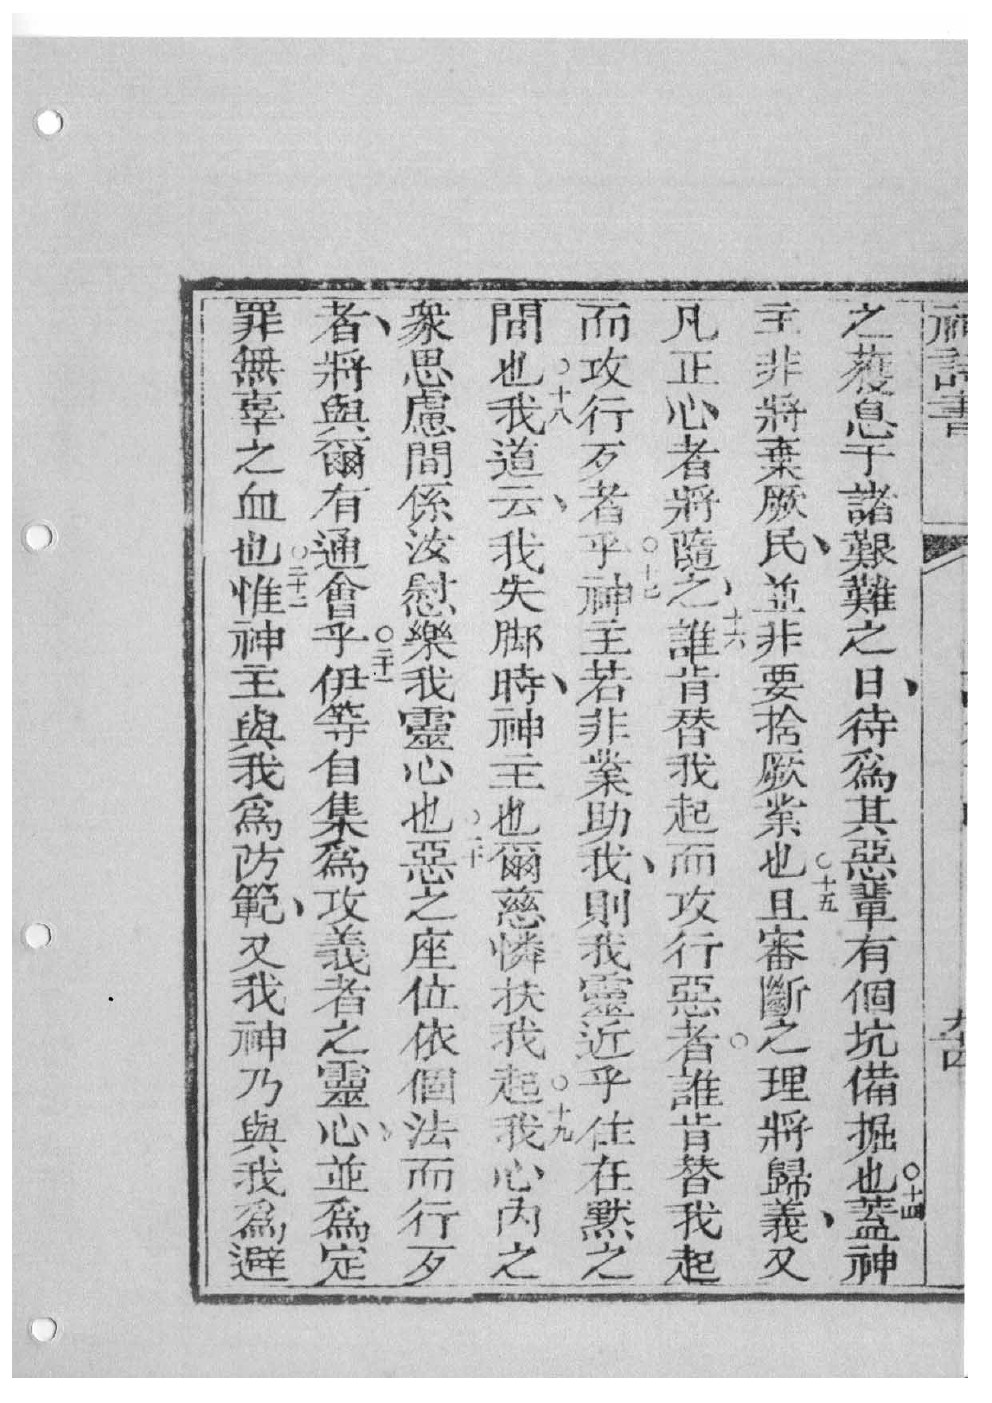 神詩書
之獲息于諸艱難之日、待爲其惡輩有個坑備掘也○十四蓋神
主非將棄厥民、並非要捨厥業也○十五且審斷之理將歸義、又
凡正心者將隨之、○十六誰肯替我起而攻行惡者○誰肯替我起
而攻行歹者乎○十七神主若非業助我、則我靈近乎住在黙之
間也○十八我道云、我失脚時、神主也爾慈憐扶我起○十九我心內之
衆思慮間係汝慰樂我靈心也○二十惡之座位依個法而行歹
者、將與爾有通會乎○二十一伊等自集爲攻義者之靈心、並爲定
罪無辜之血也○二十二惟神主與我爲防範、又我神乃與我爲避